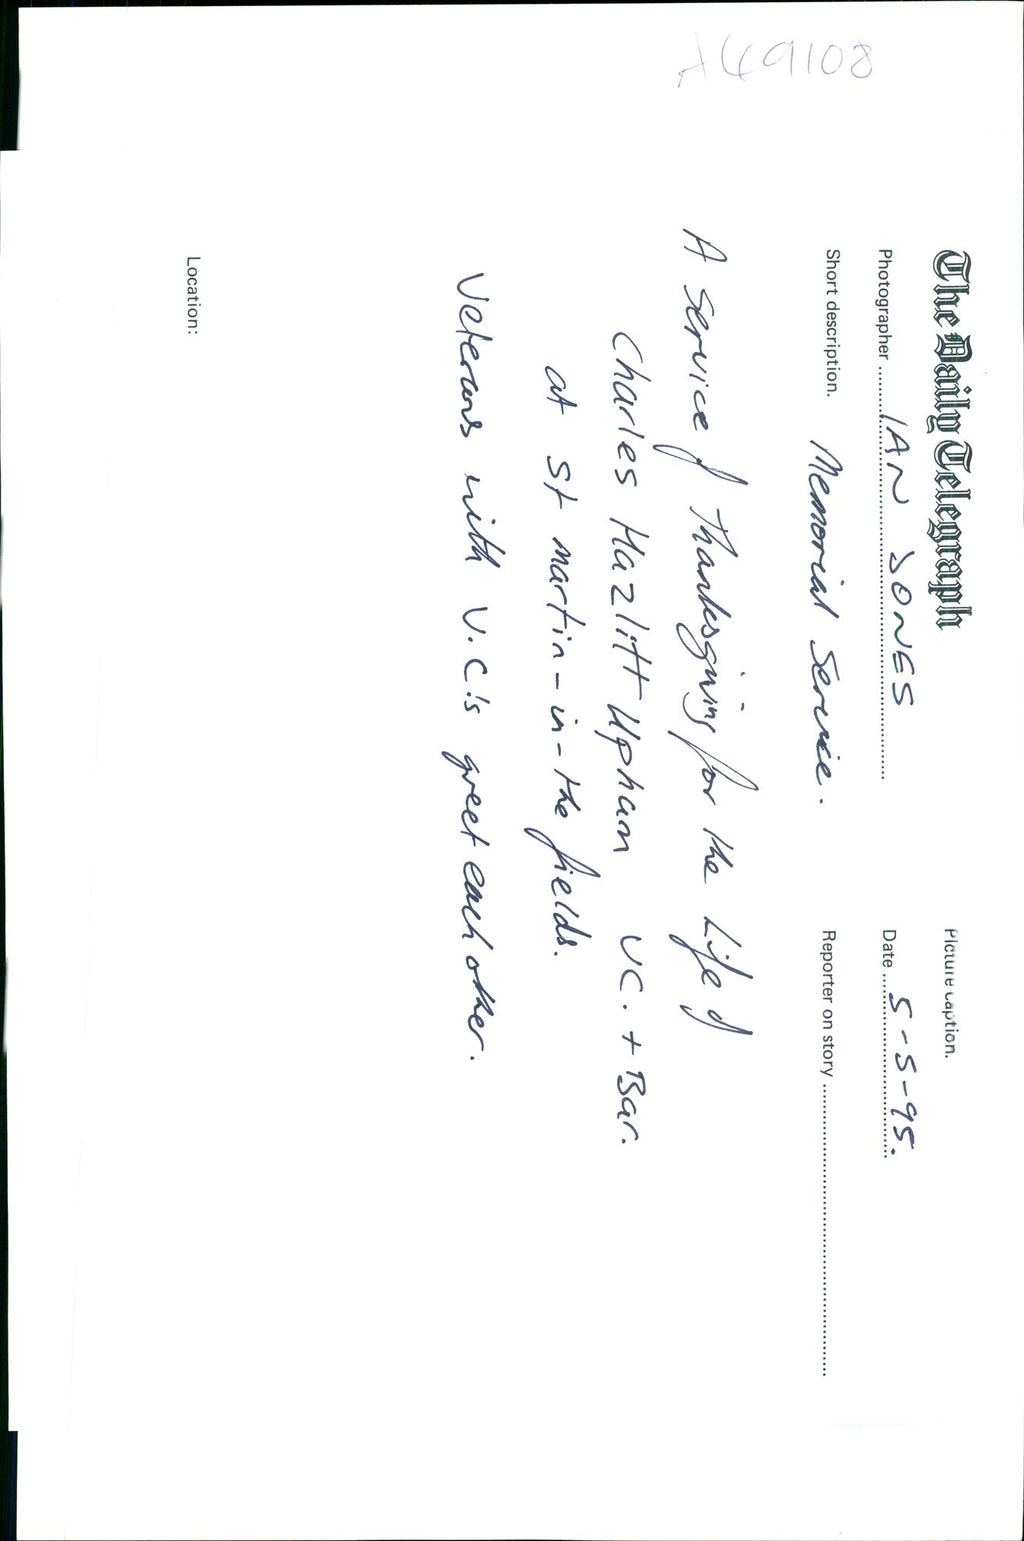 A49108
The Daily Telegraph
Picture caption.
Photographer IAN JONES
Date 5-5-95.
Short description. Memorial Service.
Reporter on story
A Service of Thanksgiving for the Life of
Charles Hazlitt Upham VC. + Bar.
at St martin-in-the fields.
Veterans with V.C's greet each other.
Location: